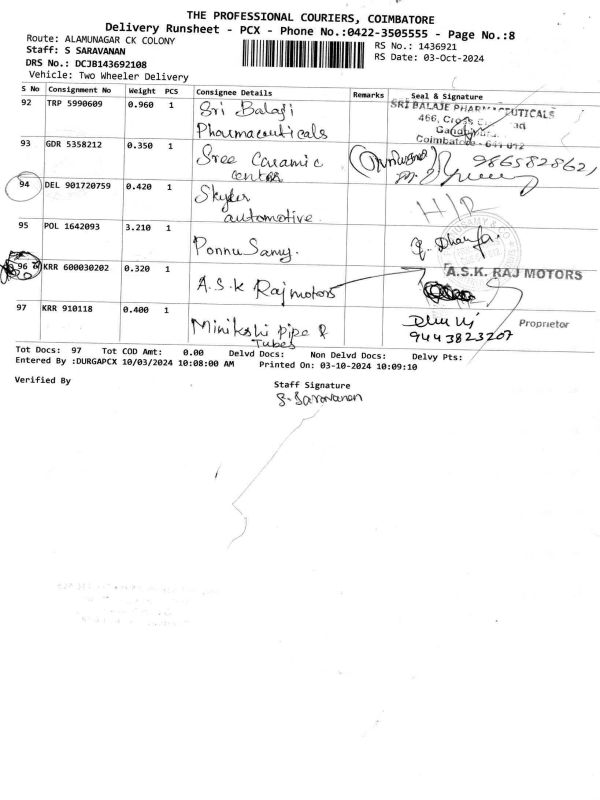 THE PROFESSIONAL COURIERS, COIMBATORE
Delivery Runsheet - PCX - Phone No.:0422-3505555 - Page No.:8
Route: ALAMUNAGAR CK COLONY
RS No.: 1436921
Staff: S SARAVANAN
RS Date: 03-Oct-2024
DRS No.: DCJB143692108
Vehicle: Two Wheeler Delivery
S No Consignment No Weight PCS Consignee Details Remarks Seal & Signature
92 TRP 5990609 0.960 1 Sri Balaji
Pharmaceuticals
SRI BALAJE PHARMACEUTICALS
466, Cross
Coimbatore - 641 012
93 GDR 5358212 0.350 1 Sree Ceramic
center
9865828621
94 DEL 901720759 0.420 1 Skyler
automotive.
H/R
95 POL 1642093 3.210 1 Ponnu Samy.
96 KRR 600030202 0.320 1 A.S.K Raj motors
A.S.K. RAJ MOTORS
97 KRR 910118 0.400 1 Minikshi pipe &
Tubes
Proprietor
9443823207
Tot Docs: 97 Tot COD Amt: 0.00 Delvd Docs: Non Delvd Docs: Delvy Pts:
Entered By :DURGAPCX 10/03/2024 10:08:00 AM Printed On: 03-10-2024 10:09:10
Verified By
Staff Signature
S. Saravanan